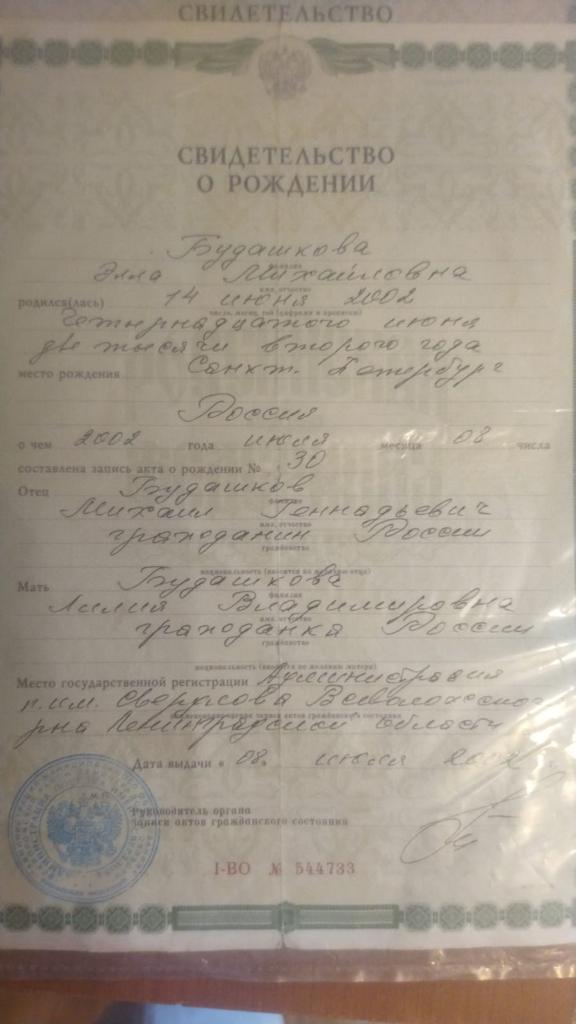 СВИДЕТЕЛЬСТВО
СВИДЕТЕЛЬСТВО
О РОЖДЕНИИ
Будашкова
фамилия
Элла Михайловна
имя, отчество
родился(лась) 14 июня 2002
число, месяц, год (цифрами и прописью)
Четырнадцатого июня
две тысячи второго года
место рождения Санкт. Петербург
Россия
о чем 2002 года июля месяца 08 числа
составлена запись акта о рождении № 30
Отец Будашков
фамилия
Михаил Геннадьевич
имя, отчество
гражданин России
гражданство
национальность (вносится по желанию отца)
Мать Будашкова
фамилия
Лилия Владимировна
имя, отчество
гражданка России
гражданство
национальность (вносится по желанию матери)
Место государственной регистрации Администрация
п. им. Свердлова Всеволожского
р-на Ленинградской области
наименование органа записи актов гражданского состояния
Дата выдачи « 08. июля 2002 г.
Руководитель органа
записи актов гражданского состояния
I-ВО № 544733